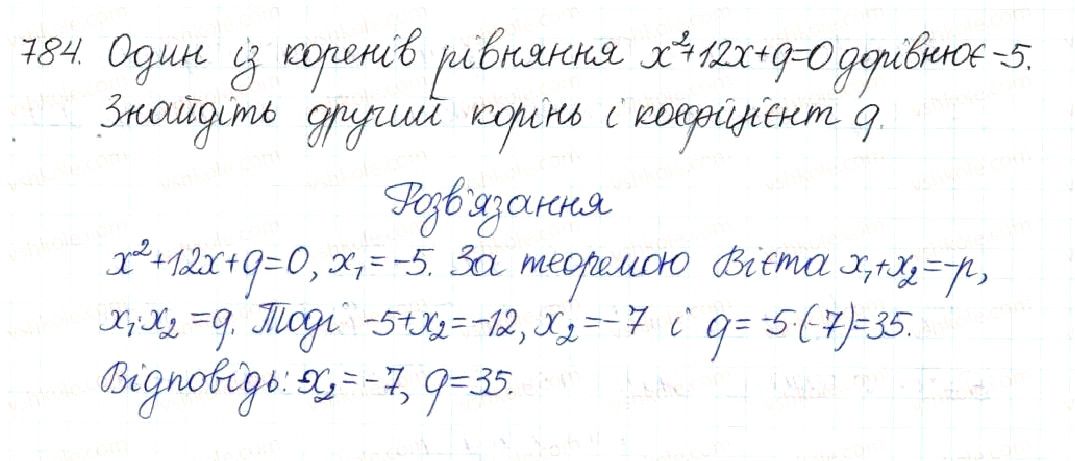 784. Один із коренів рівняння x²+12x+q=0 дорівнює -5.
Знайдіть другий корінь і коефіцієнт q.
Розв'язання
x²+12x+q=0, x₁=-5. За теоремою Вієта x₁+x₂=-p,
x₁·x₂=q. Тоді -5+x₂=-12, x₂=-7 і q=-5·(-7)=35.
Відповідь: x₂=-7, q=35.